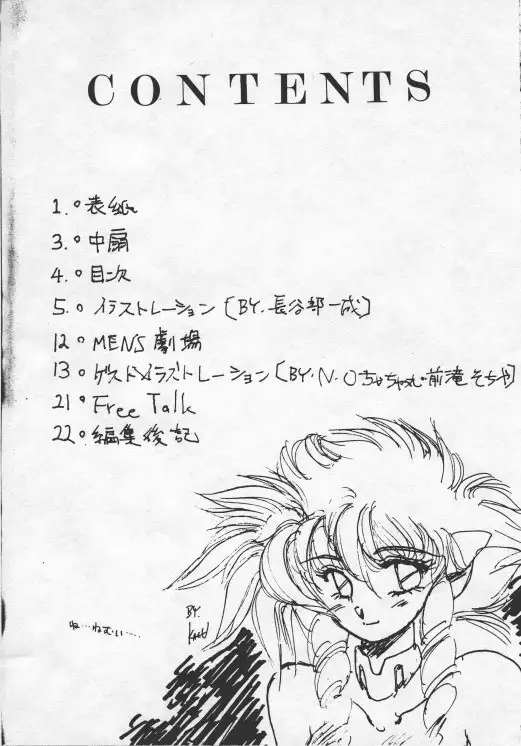 CONTENTS
1.。表紙
3.。中扇
4.。目次
5.。イラストレーション〔BY.長谷部一成〕
12。MENS劇場
13。ゲストイラストレーション〔BY.N.O
21。Free Talk
22。編集後記
BY
ね…ねむい……